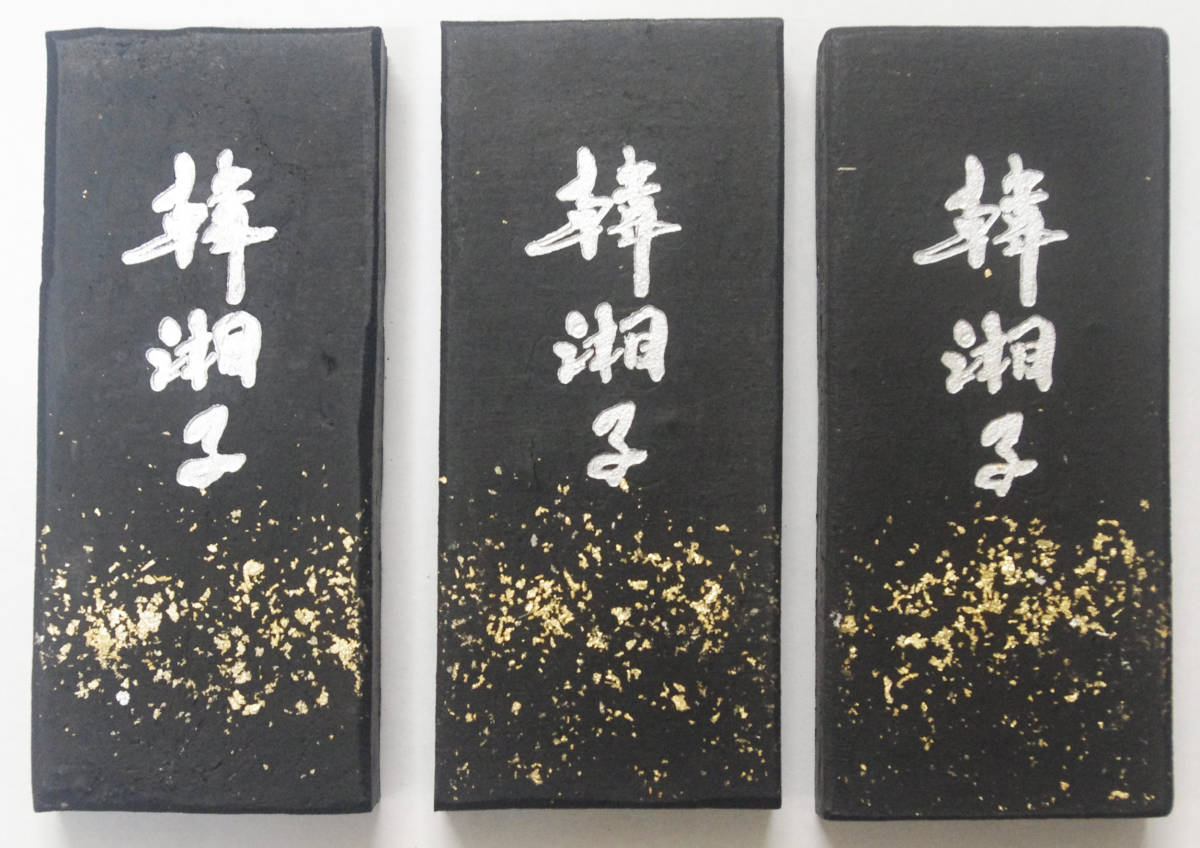 韓湘子
韓湘子
韓湘子